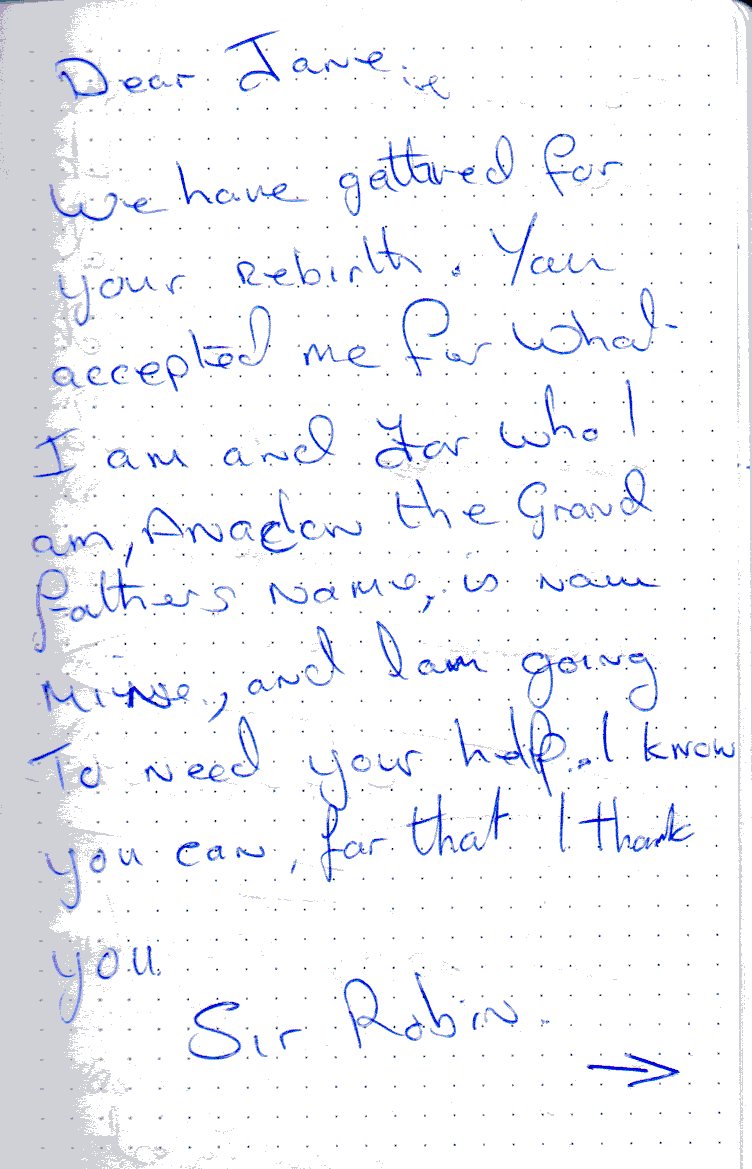 Dear Jane
We have gattured for
your rebirth. You
accepted me for what
I am and for who I
am, the Grand
fathers name, is now
mine, and I am going
To need your help. I know
you can, for that I thank
you.
Sir Robin.
→